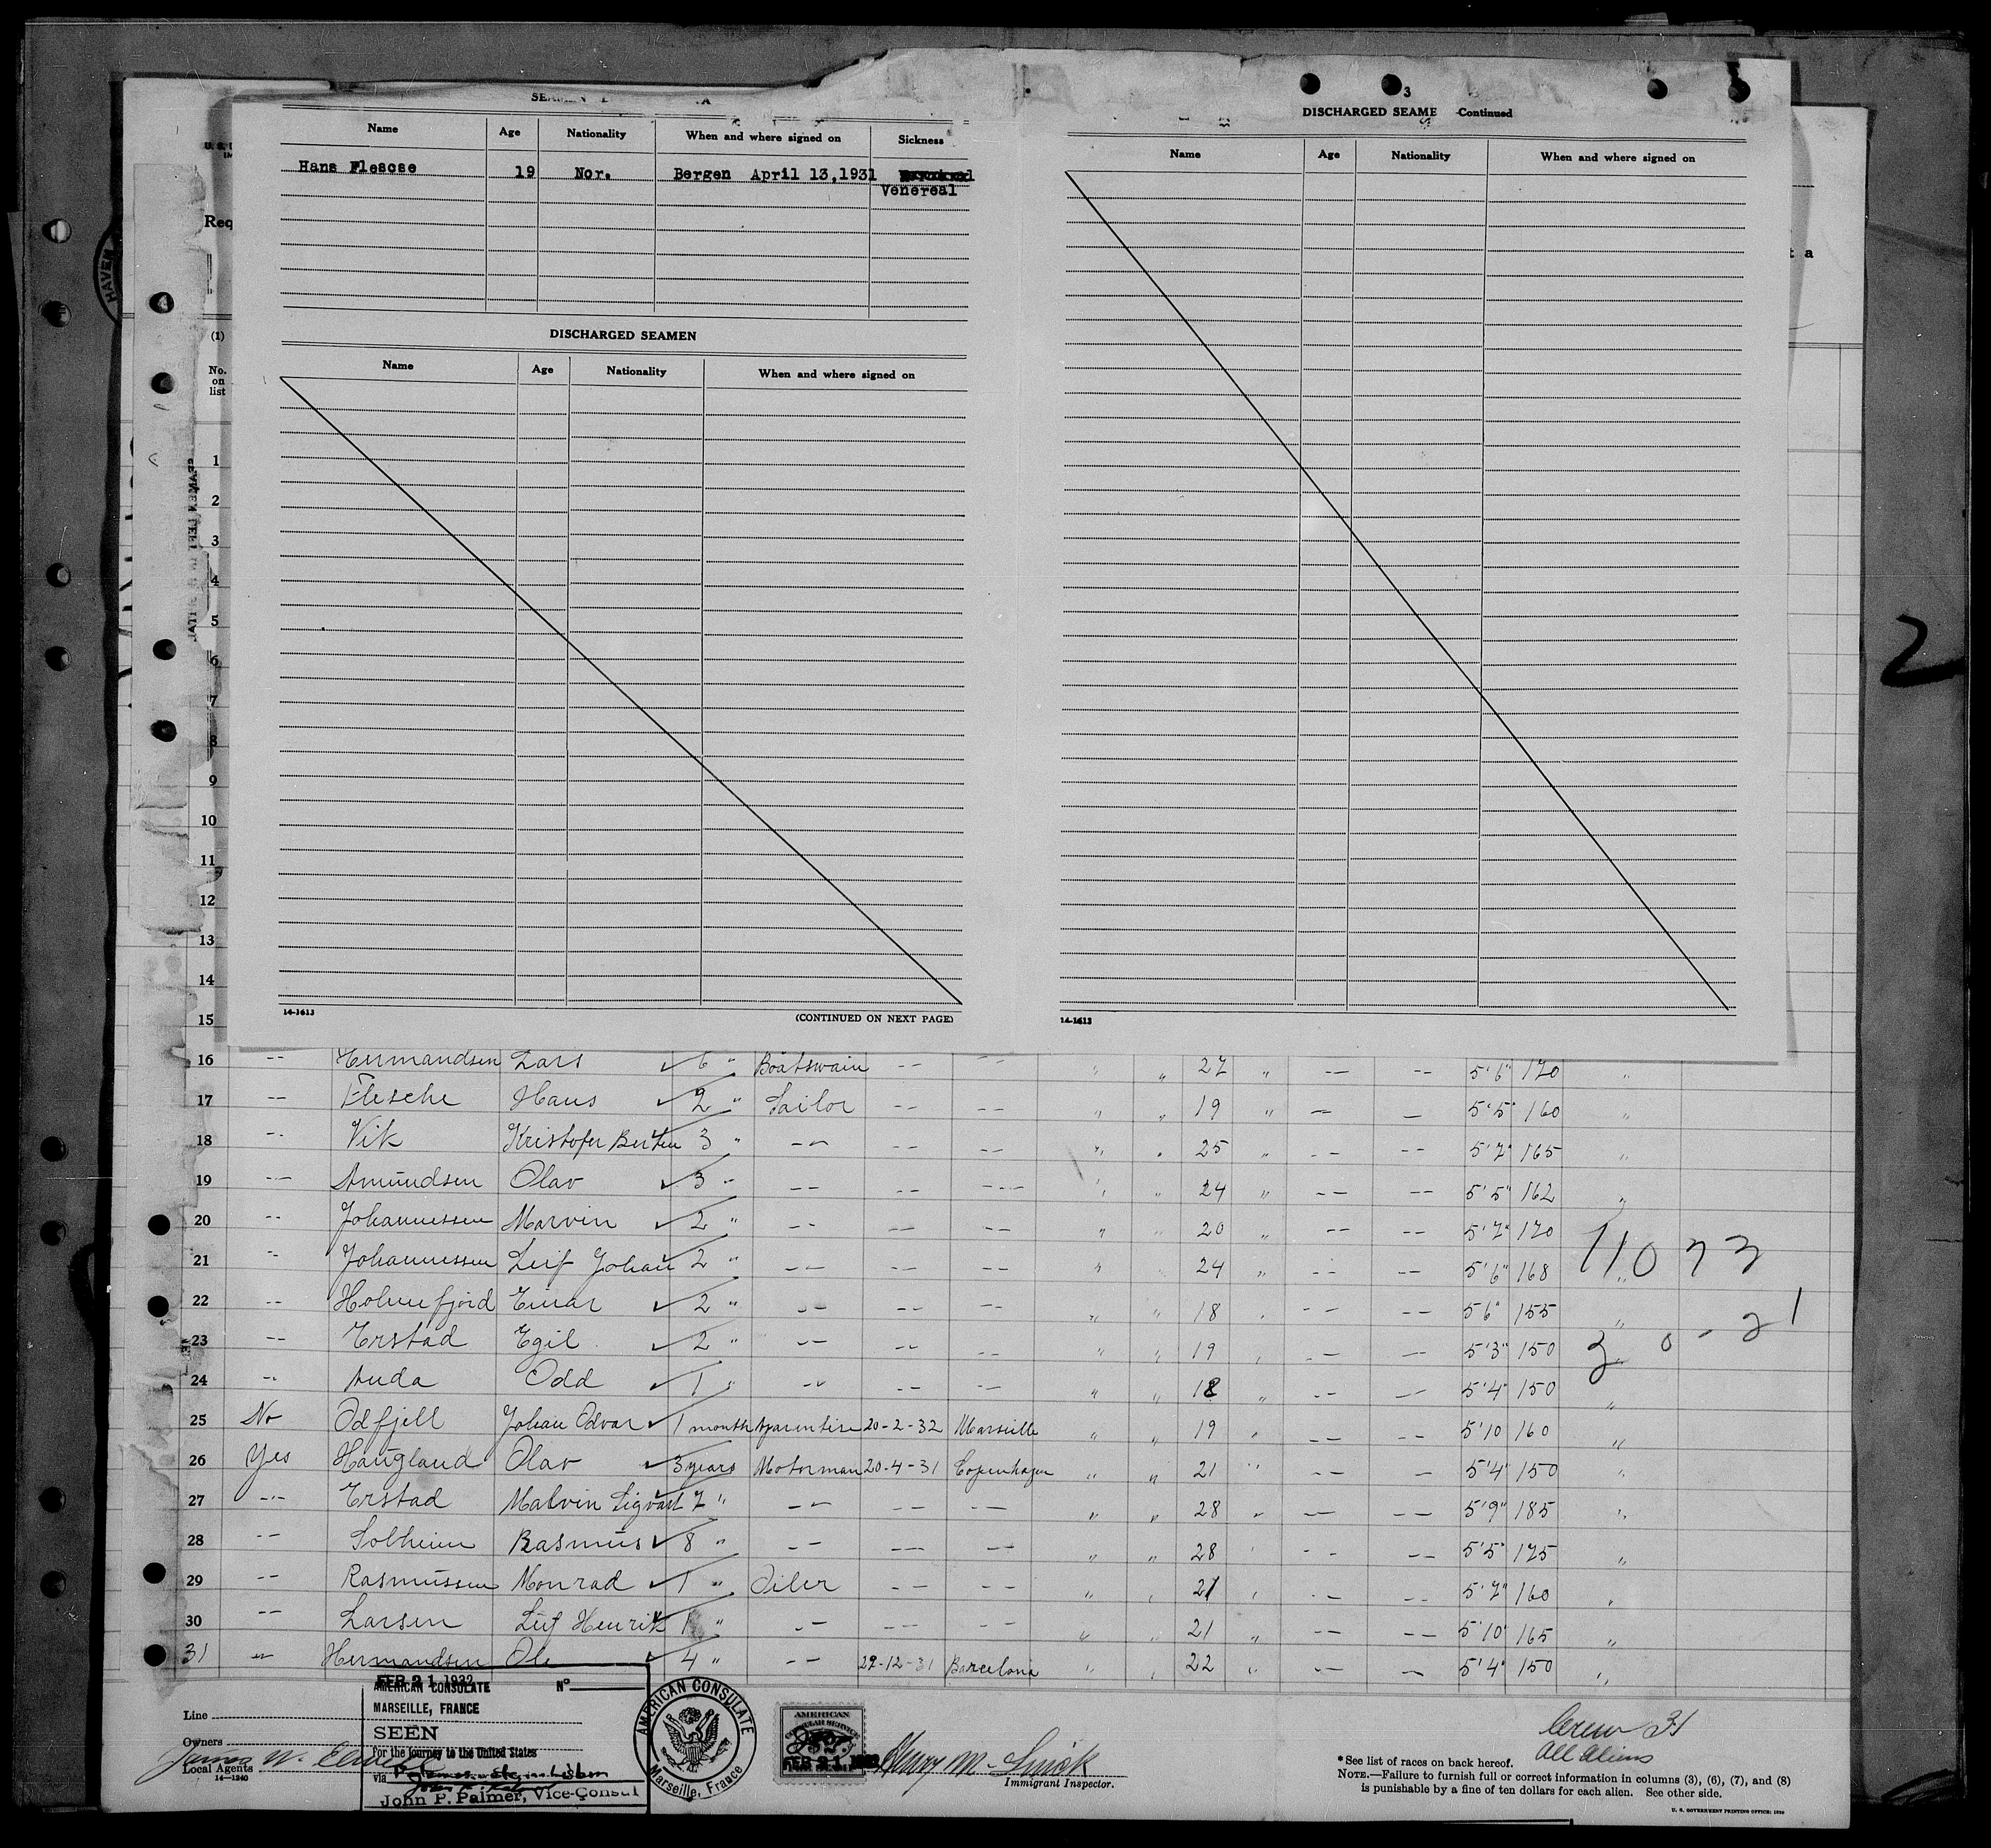 Name Age Nationality When and where signed on Sickness
Hans Flescse 19 Nor. Bergen April 13,1931
Venereal
DISCHARGED SEAMEN
Name Age Nationality When and where signed on
14-1613 (CONTINUED ON NEXT PAGE)
3
DISCHARGED SEAME Continued
Name Age Nationality When and where signed on
14-1613
HAVEN
Req
(1)
No. on list
a
2
1
2
3
4
5
6
7
8
9
10
11
12
13
14
15
16 -- Hermandsen Lars 6 " Boatswain -- -- " " 27 " -- -- 5'6" 170 "
17 -- Flesche Hans 2 " Sailor -- -- " " 19 " -- -- 5'5" 160 "
18 -- Vik Kristofer 3 " -- -- -- " " 25 " -- -- 5'7" 165 "
19 -- Amundsen Olav 3 " -- -- -- " " 24 " -- -- 5'5" 162 "
20 -- Johannessen Marvin 2 " -- -- -- " " 20 " -- -- 5'7" 170
21 -- Johannessen Leif Johan 2 " -- -- -- " " 24 " -- -- 5'6" 168 "
22 -- Holmefjord Einar 2 " -- -- -- " " 18 " -- -- 5'6" 155 "
23 -- Erstad Egil 2 " -- -- -- " " 19 " -- -- 5'3" 150 "
24 -- Auda Odd 1 " -- -- -- " " 18 " -- -- 5'4" 150 "
25 No Odfjell Johan Odvar 1 month Aparentise 20-2-32 Marseille " " 19 " -- -- 5'10 160 "
26 Yes Haugland Olav 3 years Motorman 20-4-31 Copenhagen " " 21 " -- -- 5'4" 150 "
27 -- Erstad Malvin Sigvart 7 " -- -- -- " " 28 " -- -- 5'9" 185 "
28 -- Solheim Rasmus 8 " -- -- -- " " 28 " -- -- 5'5" 175 "
29 -- Rasmussen Monrad 1 " Oiler -- -- " " 21 " -- -- 5'7" 160 "
30 -- Larsen Leif Henrik 1 " -- -- -- " " 21 " -- -- 5'10" 165 "
31 " Hermandsen Ole 4 " -- 29-12-31 Barcelona " " 22 " -- -- 5'4" 150 "
11073
3 0 - 21
Line
Owners
Local Agents
14-1240
James W.
FEB 21 1932
AMERICAN CONSULATE No
MARSEILLE, FRANCE
SEEN
For the journey to the United States
via
John P. Palmer, Vice-Consul
AMERICAN CONSULATE
Marseille, France
AMERICAN
CONSULAR SERVICE
FEB 21 1932
Henry M.
Immigrant Inspector.
Crew 31
All Aliens
*See list of races on back hereof.
NOTE.—Failure to furnish full or correct information in columns (3), (6), (7), and (8)
is punishable by a fine of ten dollars for each alien. See other side.
U. S. GOVERNMENT PRINTING OFFICE: 1930